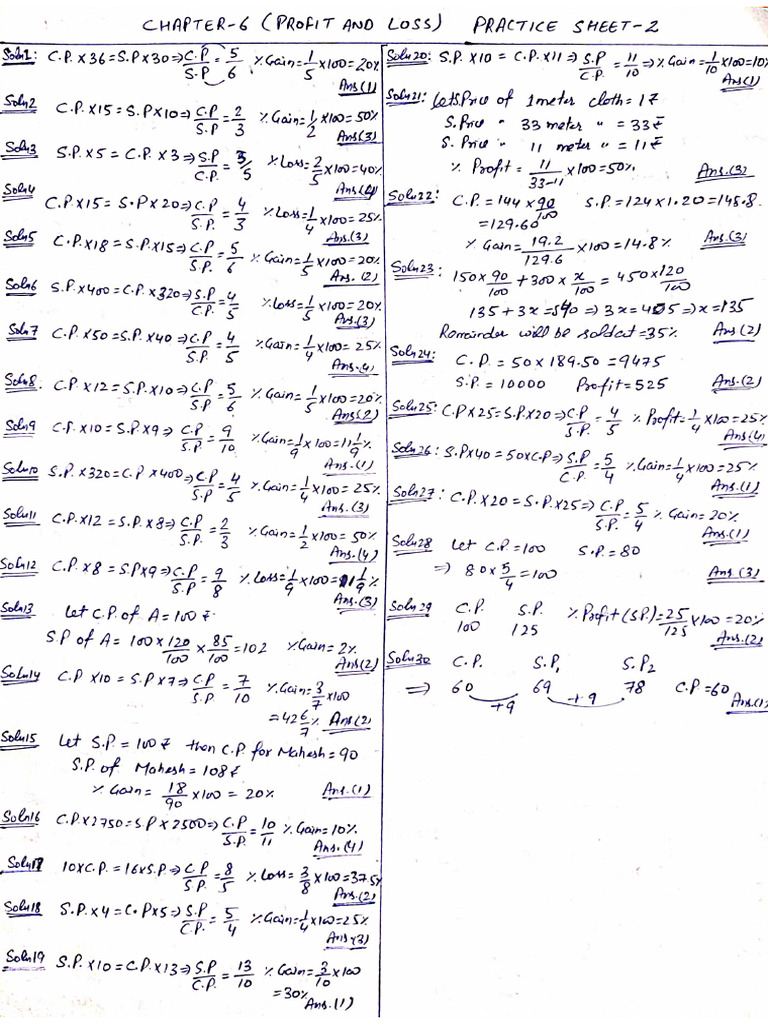 CHAPTER-6 (PROFIT AND LOSS) PRACTICE SHEET-2
Soln1: C.P. × 36 = S.P × 30 ⇒ C.P/S.P = 5/6 % Gain = 1/5 × 100 = 20%
Ans(1)
Soln2 C.P. × 15 = S.P × 10 ⇒ C.P/S.P = 2/3 % Gain = 1/2 × 100 = 50%
Ans(3)
Soln3 S.P. × 5 = C.P. × 3 ⇒ S.P/C.P. = 3/5 % Loss = 2/5 × 100 = 40%
Ans(4)
Soln4 C.P. × 15 = S.P × 20 ⇒ C.P/S.P. = 4/3 % Loss = 1/4 × 100 = 25%
Ans.(3)
Soln5 C.P. × 18 = S.P. × 15 ⇒ C.P/S.P. = 5/6 % Gain = 1/5 × 100 = 20%
Ans.(2)
Soln6 S.P. × 400 = C.P. × 320 ⇒ S.P/C.P. = 4/5 % Loss = 1/5 × 100 = 20%
Ans.(3)
Soln7 C.P. × 50 = S.P. × 40 ⇒ C.P/S.P. = 4/5 % Gain = 1/4 × 100 = 25%
Ans.(4)
Soln8. C.P. × 12 = S.P. × 10 ⇒ C.P/S.P = 5/6 % Gain = 1/5 × 100 = 20%
Ans(2)
Soln9 C.P. × 10 = S.P × 9 ⇒ C.P./S.P. = 9/10 % Gain = 1/9 × 100 = 11 1/9 %
Ans.(1)
Soln10 S.P. × 320 = C.P × 400 ⇒ C.P/S.P = 4/5 % Gain = 1/4 × 100 = 25%
Ans.(3)
Soln11 C.P. × 12 = S.P. × 8 ⇒ C.P/S.P. = 2/3 % Gain = 1/2 × 100 = 50%
Ans.(4)
Soln12 C.P. × 8 = S.P × 9 ⇒ C.P/S.P. = 9/8 % Loss = 1/9 × 100 = 11 1/9 %
Ans.(3)
Soln13 Let C.P. of A = 100 ₹.
S.P of A = 100 × 120/100 × 85/100 = 102 % Gain = 2%
Ans(2)
Soln14 C.P × 10 = S.P × 7 ⇒ C.P/S.P. = 7/10 % Gain = 3/7 × 100
= 42 6/7 % Ans(2)
Soln15 Let S.P. = 100 ₹ then C.P. for Mahesh = 90
S.P. of Mahesh = 108 ₹
% Gain = 18/90 × 100 = 20% Ans.(1)
Soln16 C.P. × 2750 = S.P × 2500 ⇒ C.P/S.P. = 10/11 % Gain = 10%
Ans.(4)
Soln17 10 × C.P. = 16 × S.P. ⇒ C.P/S.P. = 8/5 % Loss = 3/8 × 100 = 37.5%
Ans.(2)
Soln18 S.P. × 4 = C.P × 5 ⇒ S.P/C.P. = 5/4 % Gain = 1/4 × 100 = 25%
Ans.(3)
Soln19 S.P. × 10 = C.P. × 13 ⇒ S.P/C.P. = 13/10 % Gain = 3/10 × 100
= 30% Ans.(1)
Soln20: S.P. × 10 = C.P. × 11 ⇒ S.P/C.P. = 11/10 ⇒ % Gain = 1/10 × 100 = 10%
Ans(1)
Soln21: Let S.Price of 1 meter cloth = 1 ₹
S. Price " 33 meter " = 33 ₹
S. Price " 11 meter " = 11 ₹
% Profit = 11/33-11 × 100 = 50% Ans.(3)
Soln22: C.P. = 144 × 90/100 S.P. = 124 × 1.20 = 148.8
= 129.60
% Gain = 19.2/129.6 × 100 = 14.8% Ans.(3)
Soln23: 150 × 90/100 + 300 × x/100 = 450 × 120/100
135 + 3x = 540 ⇒ 3x = 405 ⇒ x = 135
Remainder will be sold at = 35% Ans(2)
Soln24: C.P. = 50 × 189.50 = 9475
S.P. = 10000 Profit = 525 Ans.(2)
Soln25: C.P × 25 = S.P × 20 ⇒ C.P/S.P. = 4/5 % Profit = 1/4 × 100 = 25%
Ans(4)
Soln26: S.P × 40 = 50 × C.P ⇒ S.P/C.P. = 5/4 % Gain = 1/4 × 100 = 25%
Ans.(1)
Soln27: C.P. × 20 = S.P. × 25 ⇒ C.P/S.P. = 5/4 % Gain = 20%
Ans.(1)
Soln28 Let C.P. = 100 S.P. = 80
⇒ 80 × 5/4 = 100 Ans.(3)
Soln29 C.P. S.P. % Profit (S.P.) = 25/125 × 100 = 20%
100 125 Ans.(2)
Soln30 C.P. S.P1 S.P2
⇒ 60 69 78 C.P = 60
+9 +9 Ans.(1)